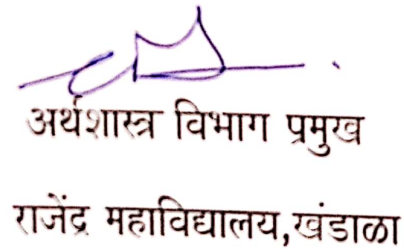 अर्थशास्त्र विभाग प्रमुख
राजेंद्र महाविद्यालय,खंडाळा